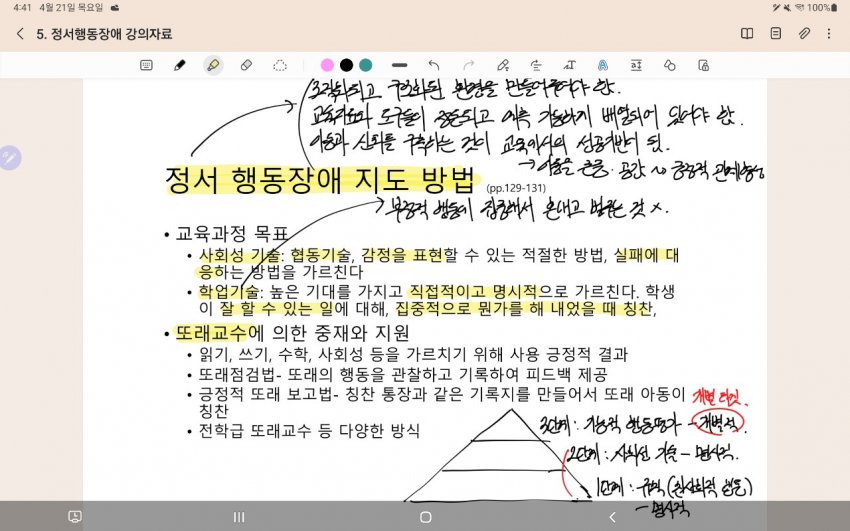 4:41 4월 21일 목요일 100%
5. 정서행동장애 강의자료
조직화되고 구조화된 환경을 만들어주어야 함.
교육자료와 도구들이 정돈되고 예측 가능하게 배열되어 있어야 함.
아동과 신뢰를 구축하는 것이 교육에서의 성공기반이 됨.
→ 아동을 존중 공간 ~ 긍정적 관계형성
정서 행동장애 지도 방법 (pp.129-131)
부정적 행동에 집중해서 혼내고 벌주는 것 x.
• 교육과정 목표
• 사회성 기술: 협동기술, 감정을 표현할 수 있는 적절한 방법, 실패에 대
응하는 방법을 가르친다
• 학업기술: 높은 기대를 가지고 직접적이고 명시적으로 가르친다. 학생
이 잘 할 수 있는 일에 대해, 집중적으로 뭔가를 해 내었을 때 칭찬,
• 또래교수에 의한 중재와 지원
• 읽기, 쓰기, 수학, 사회성 등을 가르치기 위해 사용 긍정적 결과
• 또래점검법- 또래의 행동을 관찰하고 기록하여 피드백 제공
• 긍정적 또래 보고법- 칭찬 통장과 같은 기록지를 만들어서 또래 아동이
칭찬
• 전학급 또래교수 등 다양한 방식
개별 타깃.
3단계 : 기능적 행동평가 - 개별적.
2단계 : 사회성 기술 - 명시적.
1단계 : 규칙 (친사회적 행동)
- 명시적